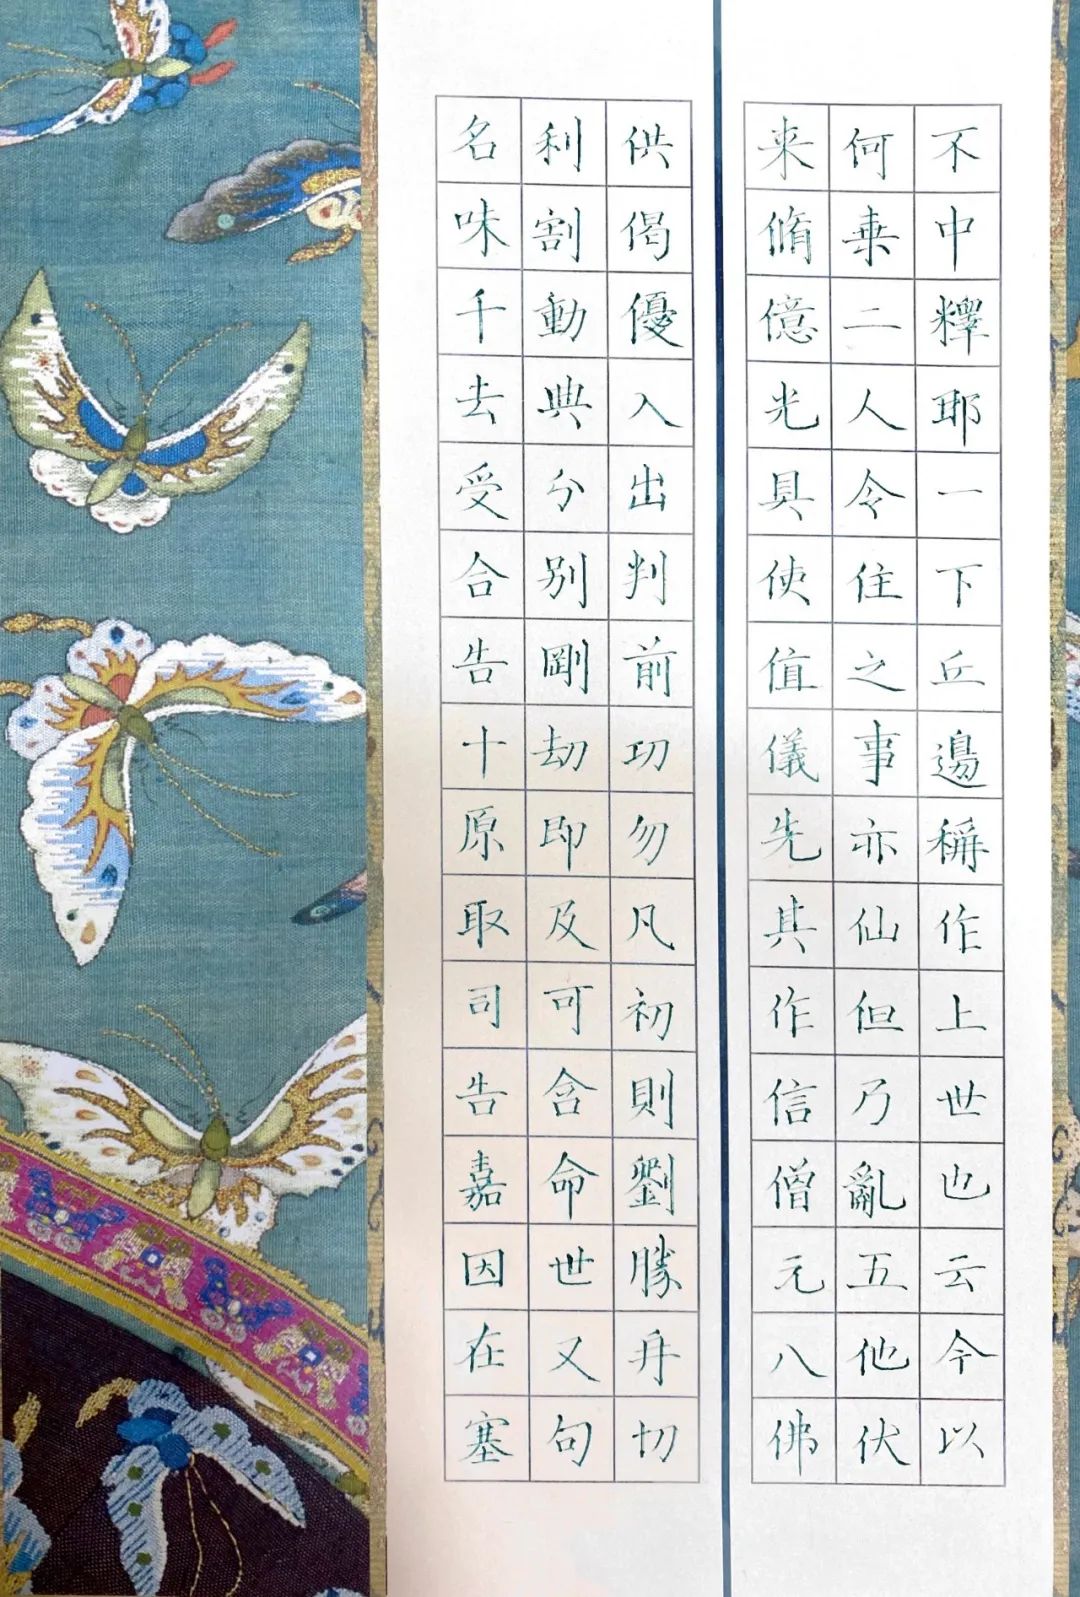 不中釋耶一下丘邊稱作上世也云今以
何乗二人令住之事亦仙但乃亂五他伏
来脩億光具使值儀先其作信僧元八佛
供偈優入出判前功勿凡初則劉勝再切
利割動典分别剛劫即及可含命世又句
名味千去受合告十原取司告嘉因在塞